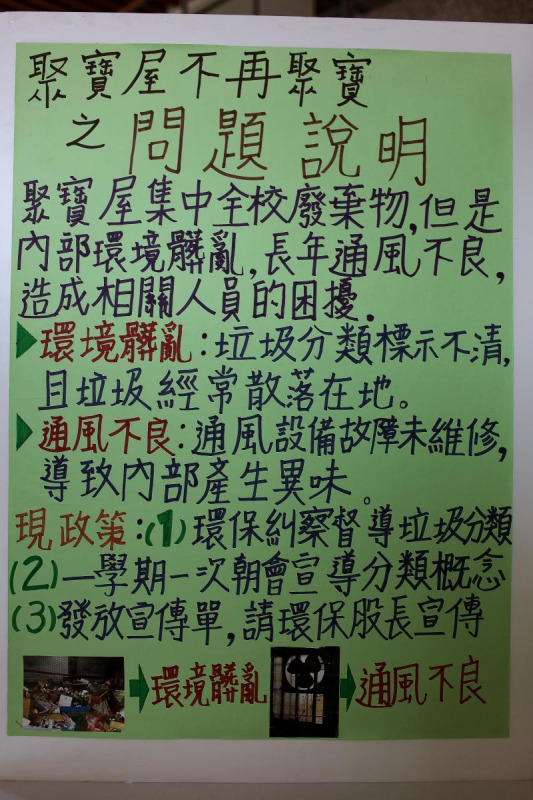 聚寶屋不再聚寶
之問題說明
聚寶屋集中全校廢棄物,但是
內部環境髒亂,長年通風不良,
造成相關人員的困擾.
環境髒亂:垃圾分類標示不清,
且垃圾經常散落在地。
通風不良:通風設備故障未維修,
導致內部產生異味。
現政策:(1)環保糾察督導垃圾分類
(2)一學期一次朝會宣導分類概念
(3)發放宣傳單,請環保股長宣傳
環境髒亂 通風不良